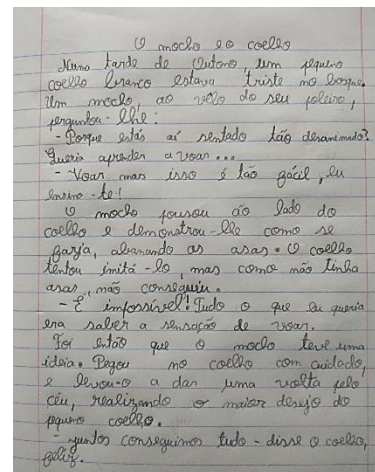 O mocho e o coelho
Numa tarde de Outono, um pequeno
coelho branco estava triste no bosque.
Um mocho, ao vê-lo do seu poleiro,
perguntou-lhe:
- Porque estás aí sentado tão desanimado?
Queria aprender a voar...
- Voar, mas isso é tão fácil, eu
ensino-te!
O mocho pousou ao lado do
coelho e demonstrou-lhe como se
fazia, abanando as asas. O coelho
tentou imitá-lo, mas como não tinha
asas, não conseguiu.
- É impossível! Tudo o que eu queria
era saber a sensação de voar.
Foi então que o mocho teve uma
ideia. Pegou no coelho com cuidado,
e levou-o a dar uma volta pelo
céu, realizando o maior desejo do
pequeno coelho.
- Juntos conseguimos tudo - disse o coelho,
feliz.